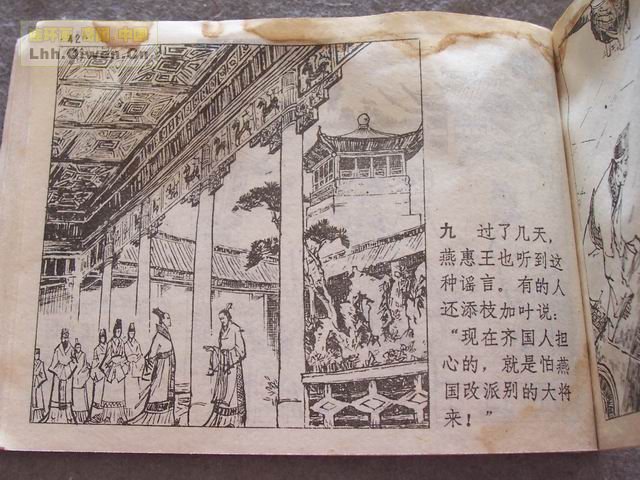 42
Lhh.Qiwan.Cn
九 过了几天，
燕惠王也听到这
种谣言。有的人
还添枝加叶说：
“现在齐国人担
心的，就是怕燕
国改派别的大将
来！”